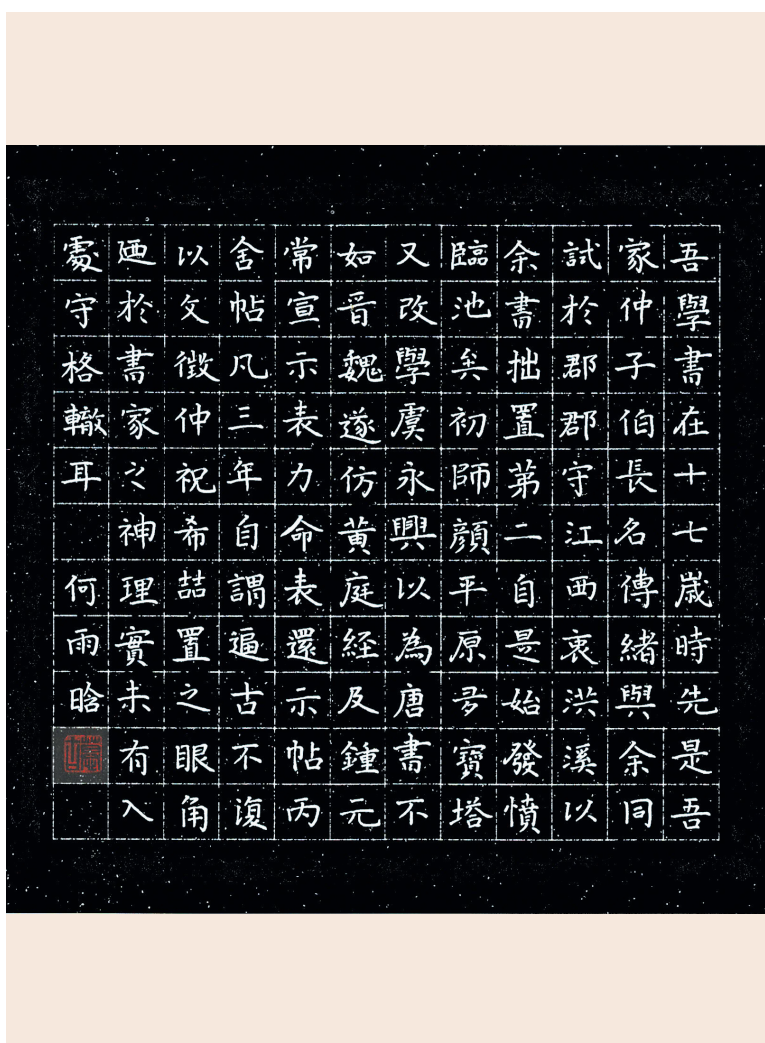 吾學書在十七歲時先是吾
家仲子伯長名傳緒與余同
試於郡郡守江西衷洪溪以
余書拙置第二自是始發憤
臨池矣初師顏平原多寶塔
又改學虞永興以為唐書不
如晉魏遂仿黃庭經及鍾元
常宣示表力命表還示帖丙
舍帖凡三年自謂逼古不復
以文徵仲祝希喆置之眼角
廼於書家之神理實未有入
處守格轍耳 何雨晗